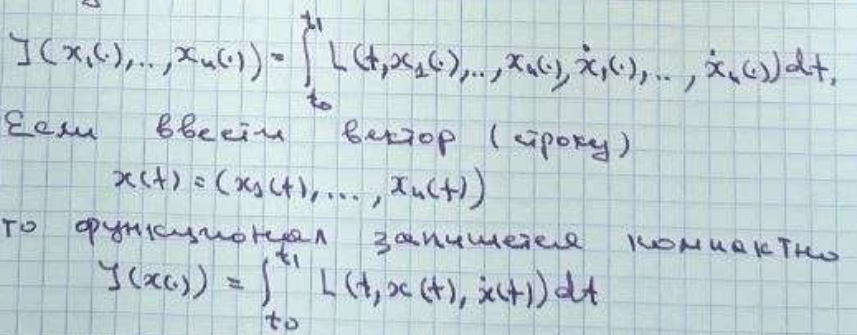 J(x₁(·),..,xₙ(·)) = ∫ₜ₀ᵗ¹ L(t,x₁(·),..,xₙ(·),ẋ₁(·),..,ẋₙ(·))dt,
Если введём вектор (строку)
x(t) = (x₁(t),...,xₙ(t))
то функционал запишется компактно
J(x(·)) = ∫ₜ₀ᵗ¹ L(t,x(t),ẋ(t))dt